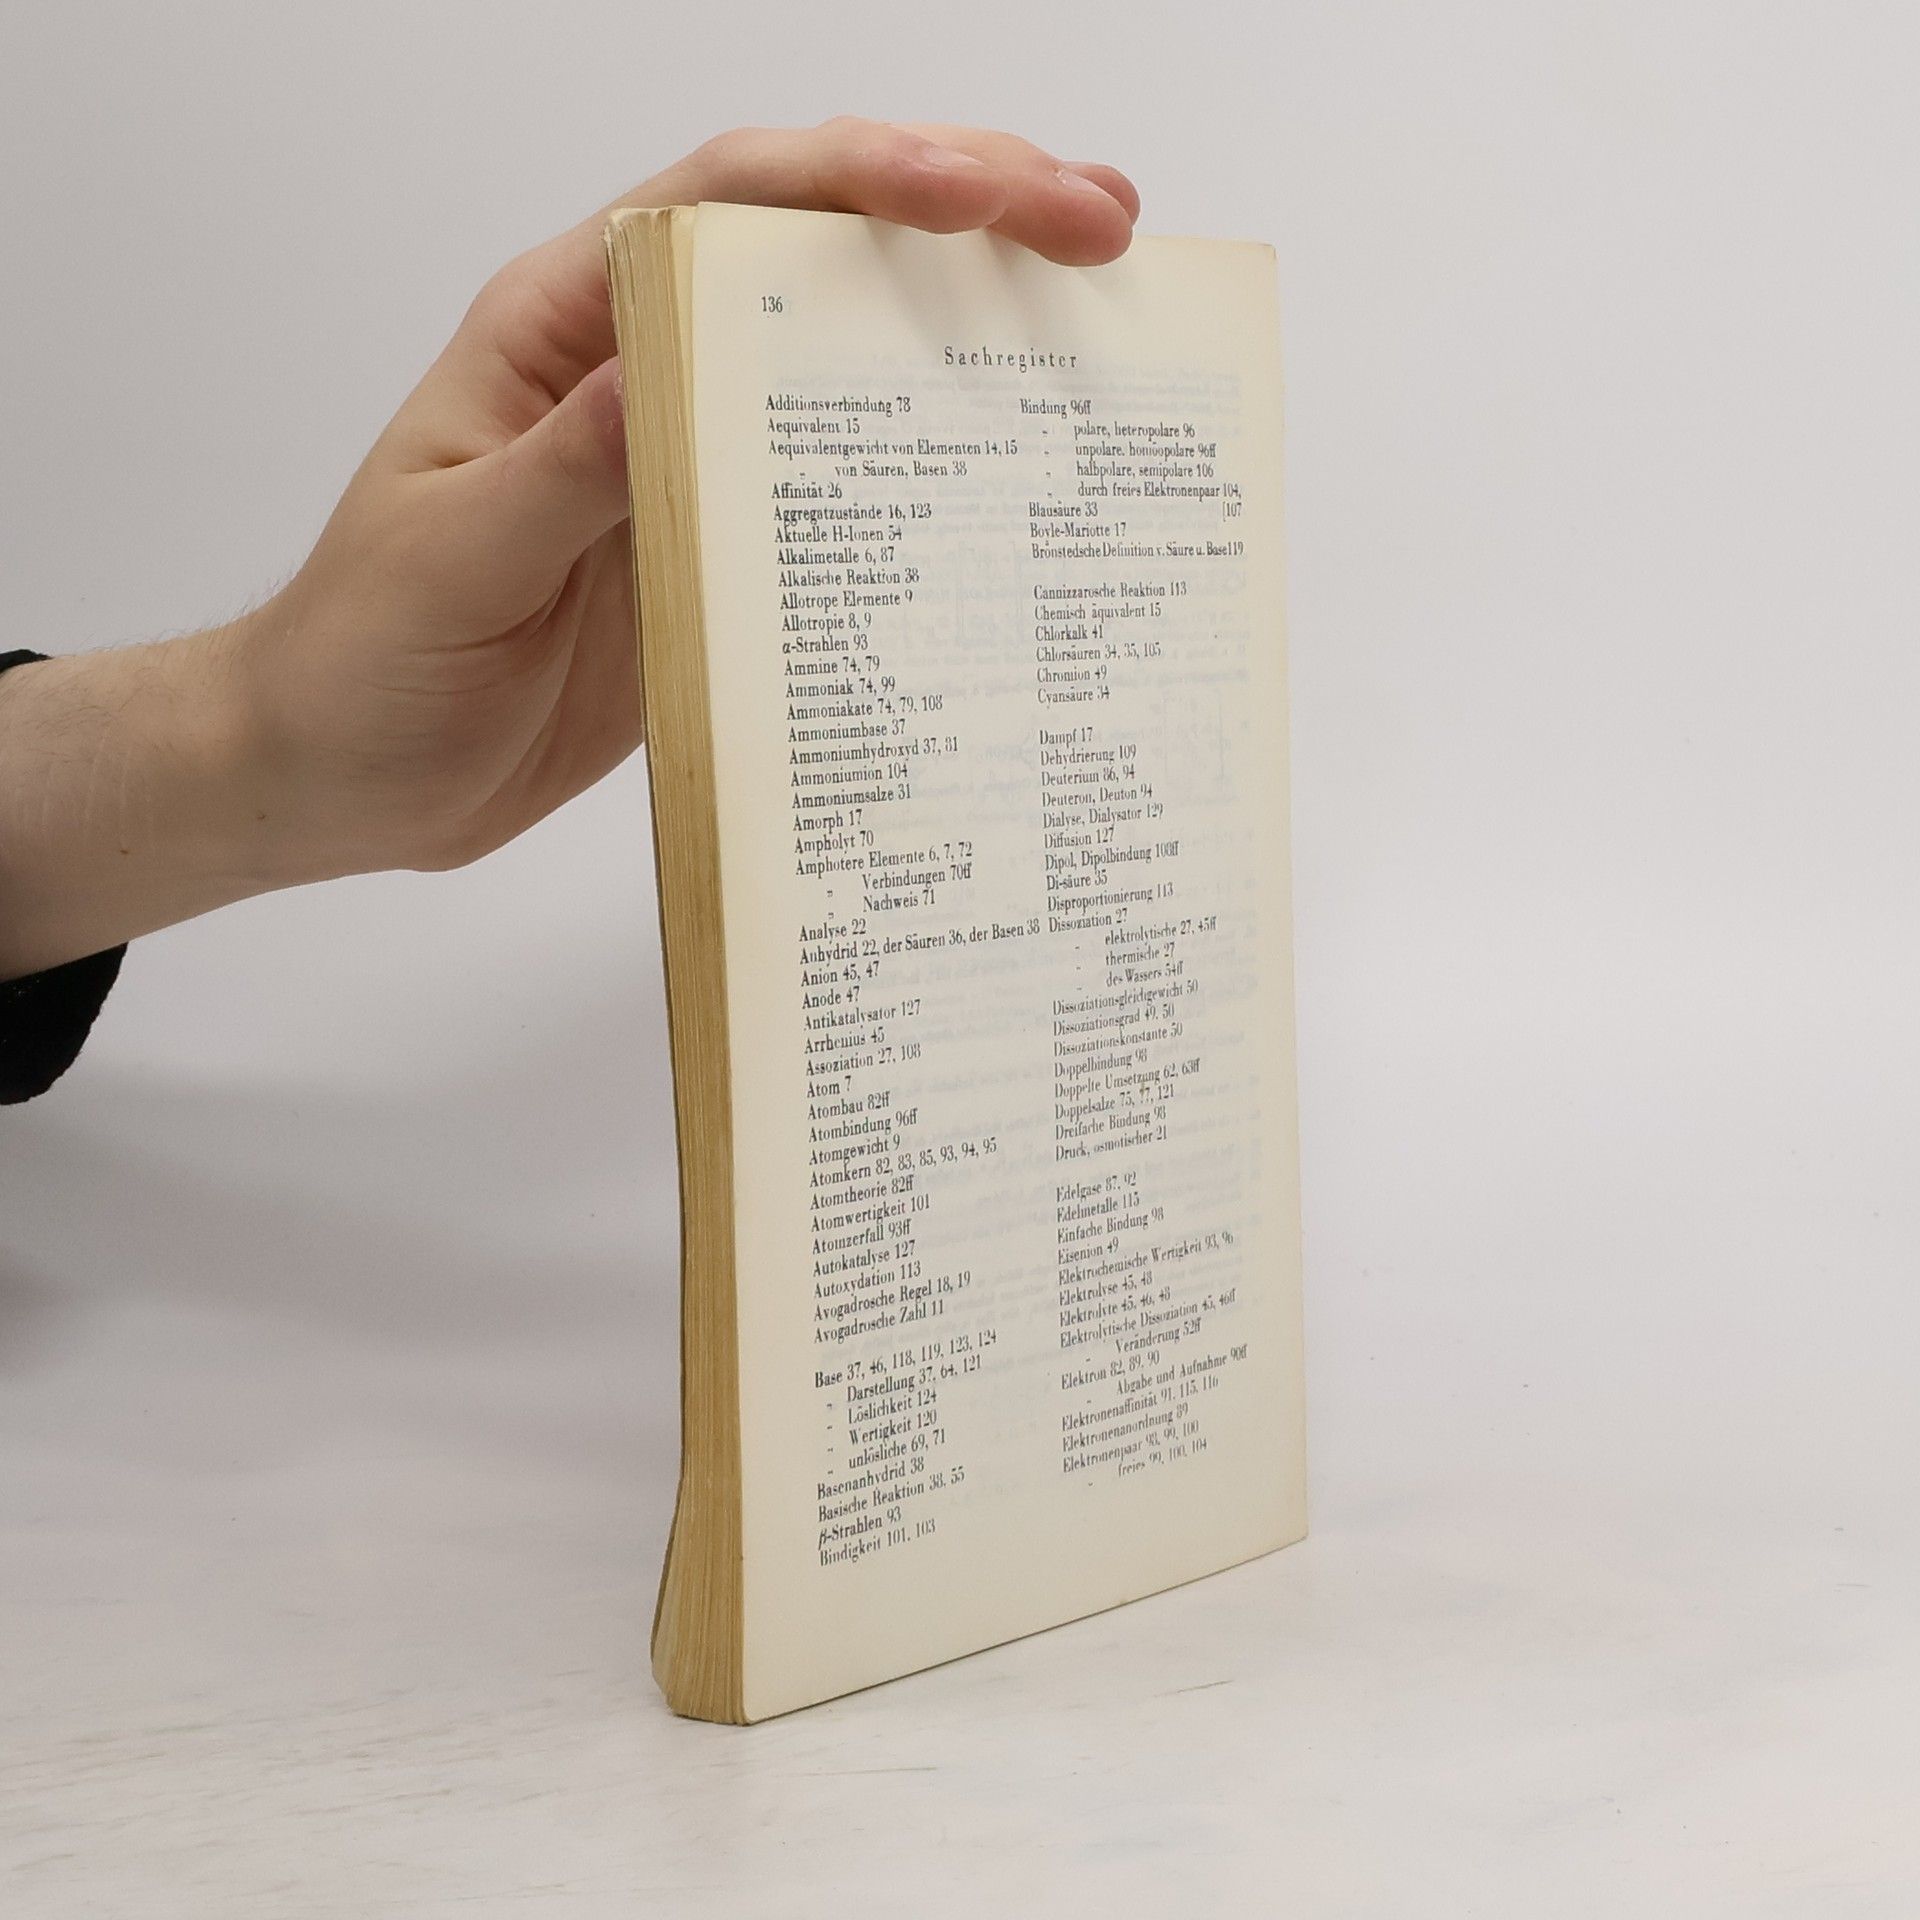 136
Sachregister
Additionsverbindung 78
Aequivalent 15
Aequivalentgewicht von Elementen 14, 15
„ von Säuren, Basen 38
Affinität 26
Aggregatzustände 16, 123
Aktuelle H-Ionen 54
Alkalimetalle 6, 87
Alkalische Reaktion 38
Allotrope Elemente 9
Allotropie 8, 9
α-Strahlen 93
Ammine 74, 79
Ammoniak 74, 99
Ammoniakate 74, 79, 108
Ammoniumbase 37
Ammoniumhydroxyd 37, 81
Ammoniumion 104
Ammoniumsalze 31
Amorph 17
Ampholyt 70
Amphotere Elemente 6, 7, 72
„ Verbindungen 70ff
„ Nachweis 71
Analyse 22
Anhydrid 22, der Säuren 36, der Basen 38
Anion 45, 47
Anode 47
Antikatalysator 127
Arrhenius 45
Assoziation 27, 108
Atom 7
Atombau 82ff
Atombindung 96ff
Atomgewicht 9
Atomkern 82, 83, 85, 93, 94, 95
Atomtheorie 82ff
Atomwertigkeit 101
Atomzerfall 93ff
Autokatalyse 127
Autoxydation 113
Avogadrosche Regel 18, 19
Avogadrosche Zahl 11
Base 37, 46, 118, 119, 123, 124
„ Darstellung 37, 64, 121
„ Löslichkeit 124
„ Wertigkeit 120
„ unlösliche 69, 71
Basenanhydrid 38
Basische Reaktion 38, 55
β-Strahlen 93
Bindigkeit 101, 103
Bindung 96ff
„ polare, heteropolare 96
„ unpolare, homöopolare 96ff
„ halbpolare, semipolare 106
„ durch freies Elektronenpaar 104,
Blausäure 33 [107
Boyle-Mariotte 17
Brönstedsche Definition v. Säure u. Base 119
Cannizzarosche Reaktion 113
Chemisch äquivalent 15
Chlorkalk 41
Chlorsäuren 34, 35, 105
Chromiion 49
Cyansäure 34
Dampf 17
Dehydrierung 109
Deuterium 86, 94
Deuteron, Deuton 94
Dialyse, Dialysator 129
Diffusion 127
Dipol, Dipolbindung 108ff
Di-säure 35
Disproportionierung 113
Dissoziation 27
„ elektrolytische 27, 45ff
„ thermische 27
„ des Wassers 54ff
Dissoziationsgleichgewicht 50
Dissoziationsgrad 49, 50
Dissoziationskonstante 50
Doppelbindung 98
Doppelte Umsetzung 62, 63ff
Doppelsalze 75, 77, 121
Dreifache Bindung 98
Druck, osmotischer 21
Edelgase 87, 92
Edelmetalle 115
Einfache Bindung 98
Eisenion 49
Elektrochemische Wertigkeit 93, 96
Elektrolyse 45, 48
Elektrolyte 45, 46, 48
Elektrolytische Dissoziation 45, 46ff
„ Veränderung 52ff
Elektron 82, 89, 90
„ Abgabe und Aufnahme 90ff
Elektronenaffinität 91, 115, 116
Elektronenanordnung 89
Elektronenpaar 98, 99, 100
„ freies 99, 100, 104